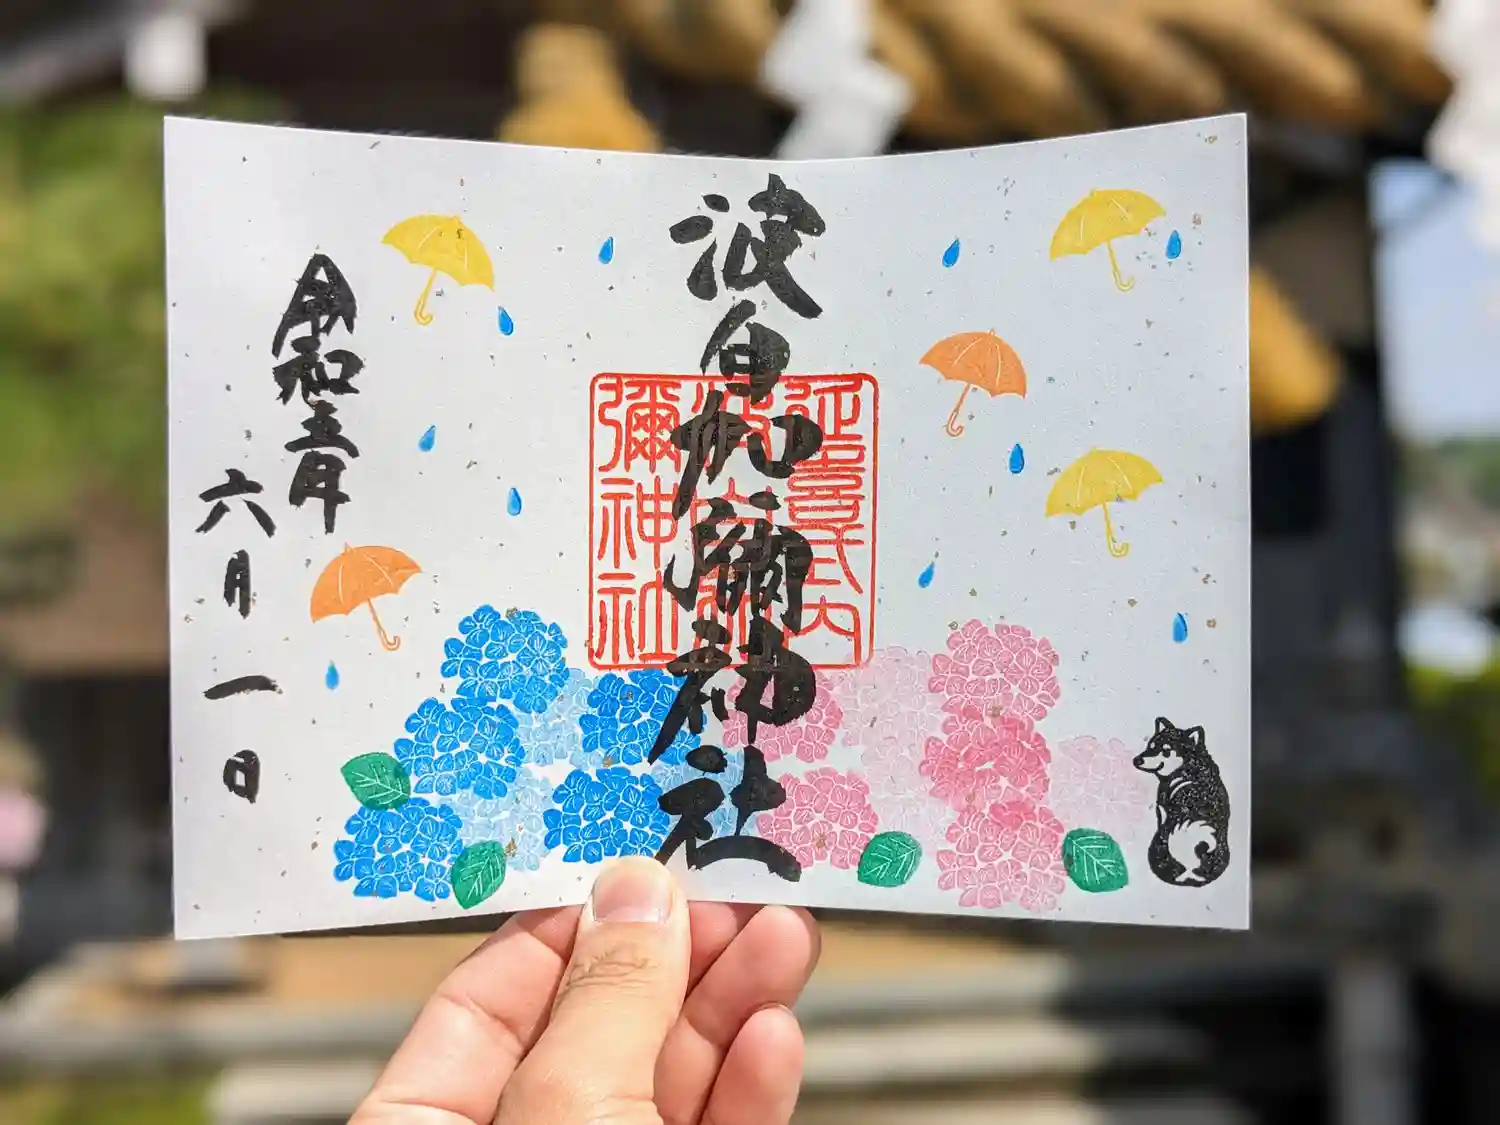 波自加彌神社
延喜式内
波自加
彌神社
令和五年
六月一日